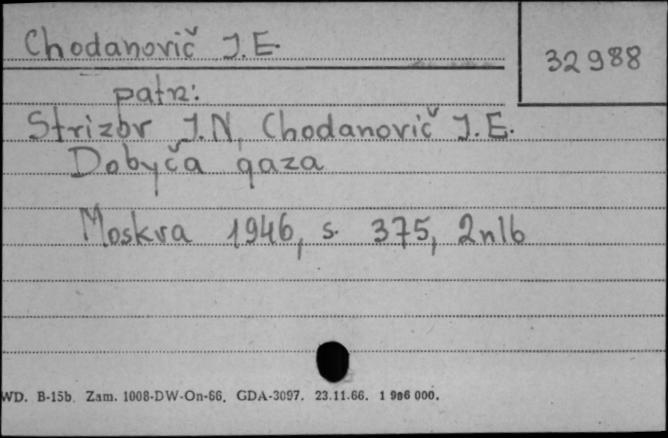 Chodanovič J.E.
32988
patrz:
Strizov J.N, Chodanovič J.E.
Dobyča gaza
Moskva 1946, s. 375, 2nlb
WD. B-15b. Zam. 1008-DW-On-66. GDA-3097. 23.11.66. 1 986 000.